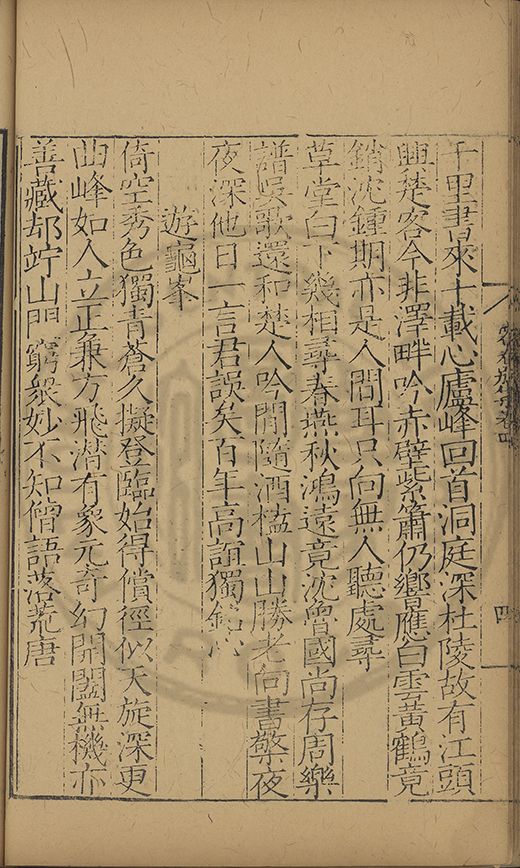 千里書來十載心廬峰回首洞庭深杜陵故有江頭
興楚客今非澤畔吟赤壁紫簫仍響應白雲黃鶴竟
銷沈鍾期亦是人間耳只向無人聽處尋
草堂白下幾相尋春燕秋鴻遠竟沈魯國尚存周樂
譜吳歌還和楚人吟閒隨酒榼山山勝老向書檠夜
夜深他日一言君誤矣百年高誼獨心
遊龜峯
倚空秀色獨青蒼久擬登臨始得償徑似天旋深更
曲峰如人立正兼方飛潛有象元奇幻開闔無機亦
善藏却竚山門窮衆妙不知僧語落荒唐
卷四
四